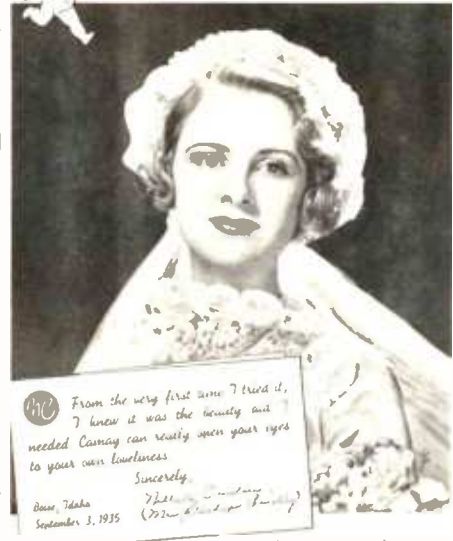 From the very first time I tried it,
I knew it was the beauty aid I
needed Camay can really open your eyes
to your own loveliness
Sincerely,
Boise, Idaho
September 3, 1935